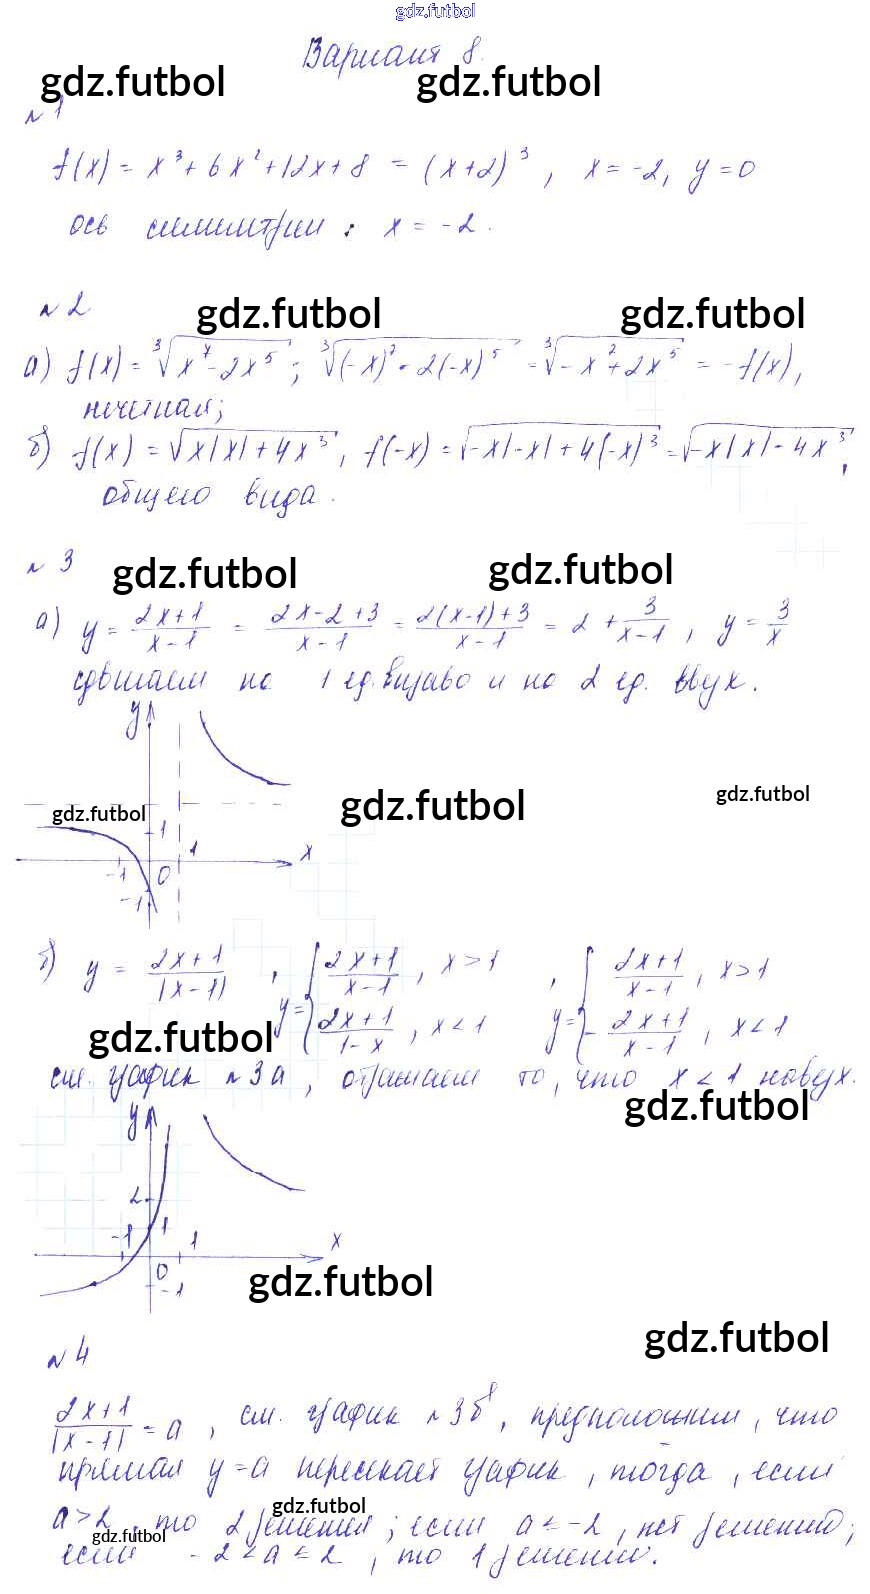 gdz.futbol
Вариант 8.
gdz.futbol gdz.futbol
№1
f(x) = x³ + 6x² + 12x + 8 = (x+2)³, x = -2, y = 0
ось симметрии: x = -2.
№2
gdz.futbol gdz.futbol
а) f(x) = ∛(x⁷ - 2x⁵); ∛((-x)⁷ - 2(-x)⁵) = ∛(-x⁷ + 2x⁵) = -f(x),
нечетная;
б) f(x) = √(x|x| + 4x³), f(-x) = √(-x|-x| + 4(-x)³) = √(-x|x| - 4x³),
общего вида.
№3
gdz.futbol gdz.futbol
а) y = (2x+1)/(x-1) = (2x-2+3)/(x-1) = (2(x-1)+3)/(x-1) = 2 + 3/(x-1), y = 3/x
сдвигаем на 1 ед. вправо и на 2 ед. вверх.
y
gdz.futbol gdz.futbol gdz.futbol
1
-1 0 1 x
-1
б) y = (2x+1)/|x-1|, y = { (2x+1)/(x-1), x > 1; (2x+1)/(1-x), x < 1, y = { (2x+1)/(x-1), x > 1; -(2x+1)/(x-1), x < 1
gdz.futbol
см. график №3а, отражаем то, что x < 1 наверх.
gdz.futbol
y
2
-1 1 1 x
0
-1
gdz.futbol
gdz.futbol
№4
(2x+1)/|x-1| = a, см. график №3б, предположим, что
прямая y = a пересекает график, тогда, если
a > 2, то 2 решения; если a ≤ -2, нет решений;
gdz.futbol
gdz.futbol
если -2 < a ≤ 2, то 1 решение.